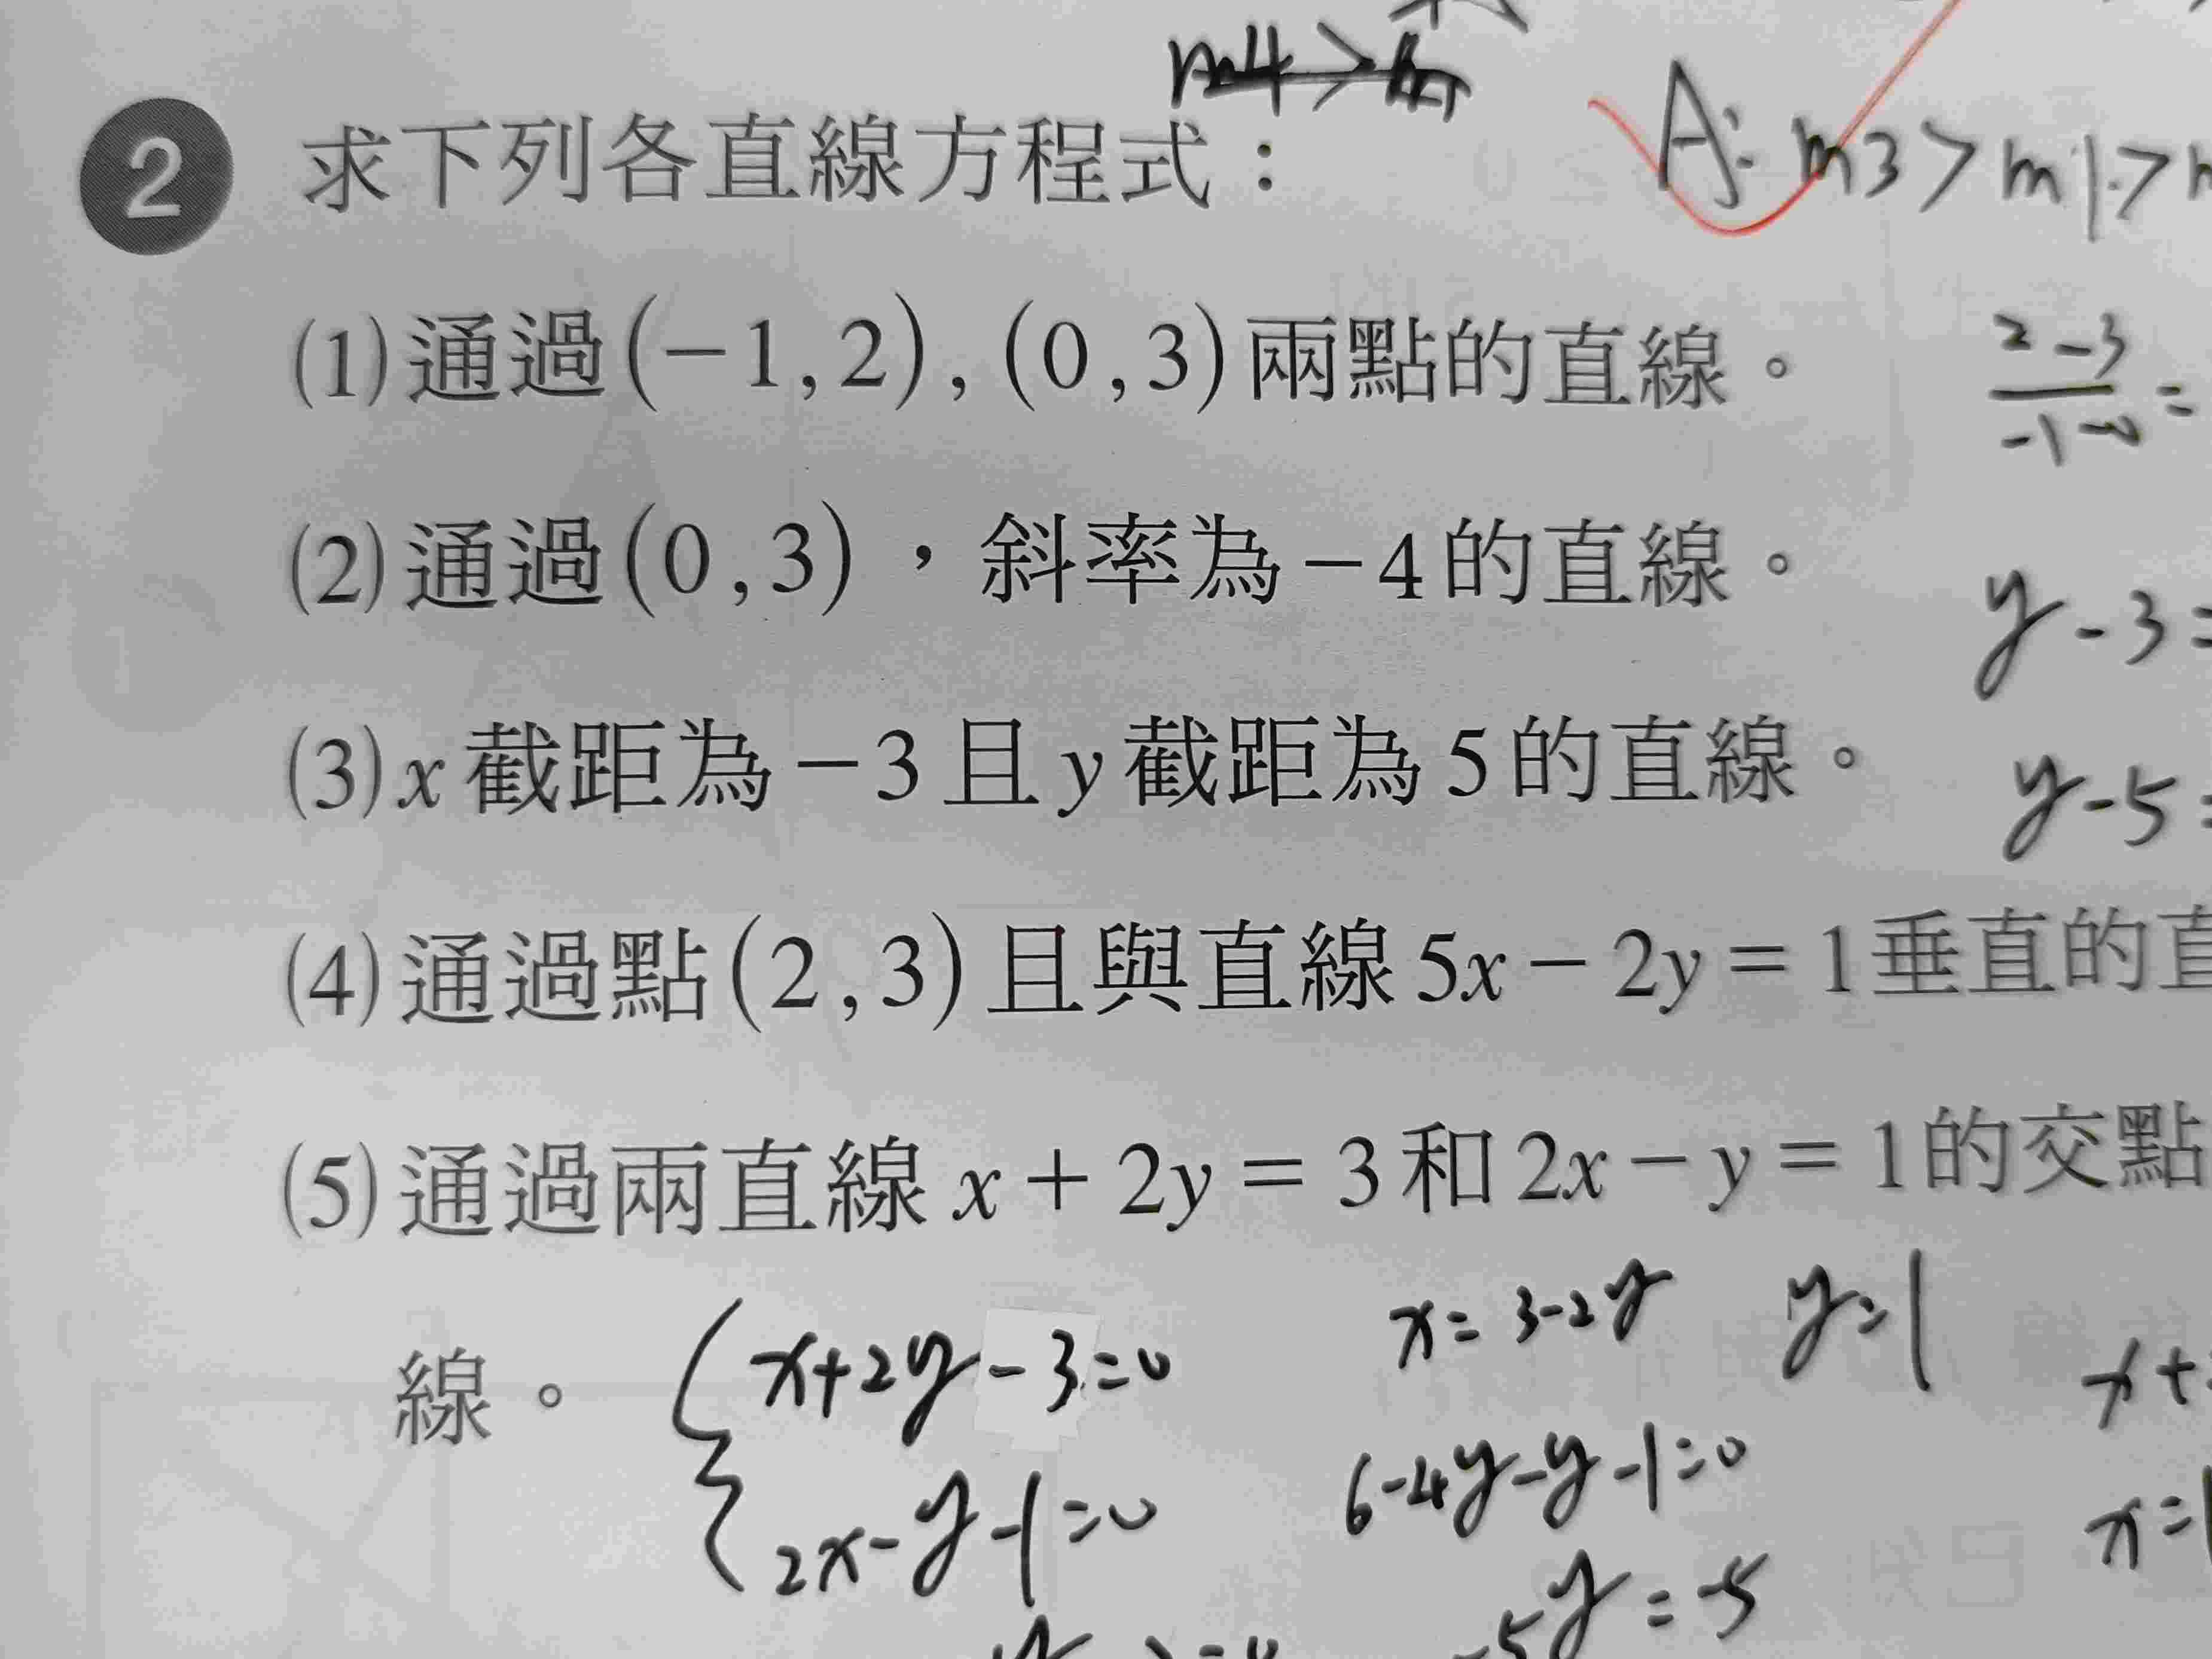 m4>
A: m3>m1>
2 求下列各直線方程式：
(1)通過(−1,2),(0,3)兩點的直線。 2-3/-1-0=
(2)通過(0,3)，斜率為−4的直線。
y-3=
(3)x截距為−3且y截距為5的直線。
y-5=
(4)通過點(2,3)且與直線5x−2y=1垂直的直
(5)通過兩直線x+2y=3和2x−y=1的交點
線。 {x+2y-3=0 x=3-2y y=1
x+
2x-y-1=0 6-4y-y-1=0
x=1
-5y=-5